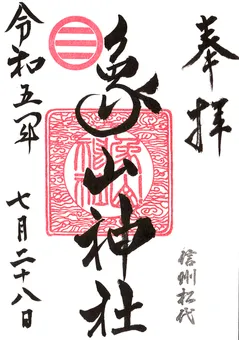 奉拝
信州松代
象山神社
令和五年
七月二十八日